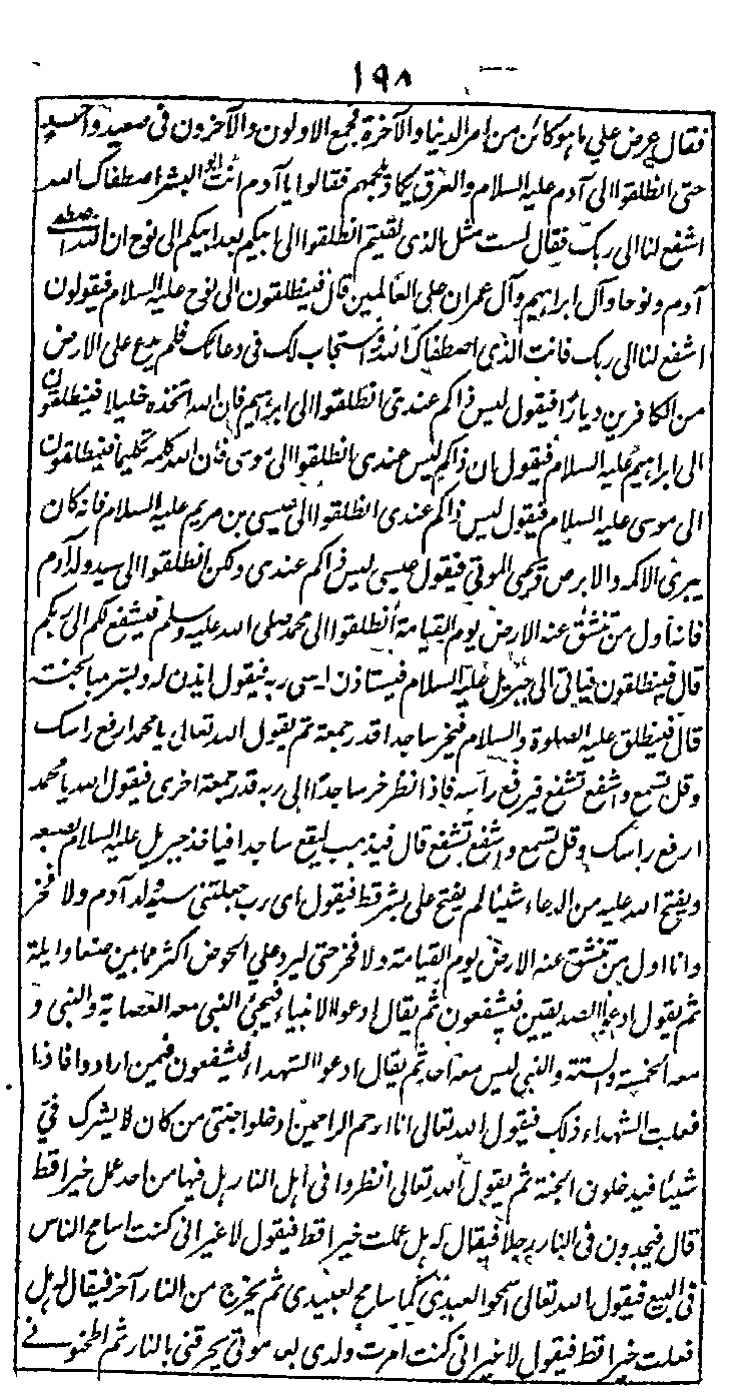 ١٩٨
فقال عرض علي ما هو كائن من امر الدنيا والآخرة فجمع الاولون والآخرون فى صعيد واحد
حتى انطلقوا الى آدم عليه السلام والعرق يكاد يلجمهم فقالوا يا آدم انت ابو البشر اصطفاك الله
اشفع لنا الى ربك فقال لست مثل الذى لقيتم انطلقوا الى ابيكم بعد ابيكم الى نوح ان الله اصطفى
آدم ونوحا وآل ابراهيم وآل عمران على العالمين قال فينطلقون الى نوح عليه السلام فيقولون
اشفع لنا الى ربك فانت الذى اصطفاك الله واستجاب لك فى دعائك فلم يدع على الارض
من الكافرين ديارا فيقول ليس ذاكم عندى انطلقوا الى ابراهيم فان الله اتخذه خليلا فينطلقون
الى ابراهيم عليه السلام فيقول ان ذاكم ليس عندى انطلقوا الى موسى فان الله كلمه تكليما فينطلقون
الى موسى عليه السلام فيقول ليس ذاكم عندى انطلقوا الى عيسى بن مريم عليه السلام فانه كان
يبرئ الاكمه والابرص ويحيى الموتى فيقول عيسى ليس ذاكم عندى ولكن انطلقوا الى سيد ولد آدم
فانه اول من تنشق عنه الارض يوم القيامة انطلقوا الى محمد صلى الله عليه وسلم فيشفع لكم الى ربكم
قال فينطلقون فياتى الى جبريل عليه السلام فيستاذن الى ربه فيقول ايذن له وبشره بالجنة
قال فينطلق عليه الصلوة والسلام فيخر ساجدا قدر جمعة ثم يقول الله تعالى يا محمد ارفع راسك
وقل تسمع واشفع تشفع فيرفع رأسه فاذا نظر خر ساجدًا الى ربه قدر جمعة اخرى فيقول الله يا محمد
ارفع راسك وقل تسمع واشفع تشفع قال فيذهب ليقع ساجدا فياخذ جبريل عليه السلام بضبعه
ويفتح الله عليه من الدعاء شيئا لم يفتح على بشر قط فيقول اى رب جعلتنى سيد ولد آدم ولا فخر
وانا اول من تنشق عنه الارض يوم القيامة ولا فخر حتى ليرد علي الحوض اكثر مما بين صنعا وايلة
ثم يقول ادعوا الصديقين فيشفعون ثم يقال ادعوا الانبياء فيجئ النبى معه العصابة والنبى و
معه الخمسة والستة والنبى ليس معه احد ثم يقال ادعوا الشهداء فيشفعون فيمن ارادوا فاذا
فعلت الشهداء ذلك فيقول الله تعالى انا ارحم الراحمين ادخلوا جنتى من كان لا يشرك بى
شيئا فيدخلون الجنة ثم يقول الله تعالى انظروا فى اهل النار هل فيها من احد عمل خيرا قط
قال فيجدون فى النار رجلا فيقال له هل عملت خيرا قط فيقول لا غير انى كنت اسامح الناس
فى البيع فيقول الله تعالى اسمحوا لعبدى كما سامح لعبيدى ثم يخرج من النار آخر فيقال له هل
فعلت خيرا قط فيقول لا غير انى كنت امرت ولدى بعد موتى يحرقنى بالنار ثم اطحنونے